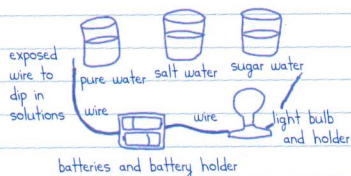 exposed
wire to
dip in
solutions
pure water
salt water
sugar water
wire
wire
light bulb
and holder
batteries and battery holder